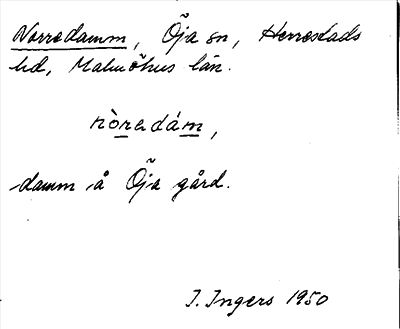 Norredamm, Öja sn, Herrestads
hd, Malmöhus län.
nòredám,
damm å Öja gård.
I. Ingers 1950